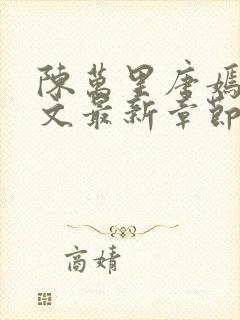 陳萬里唐嫣
文最新章節
高婧